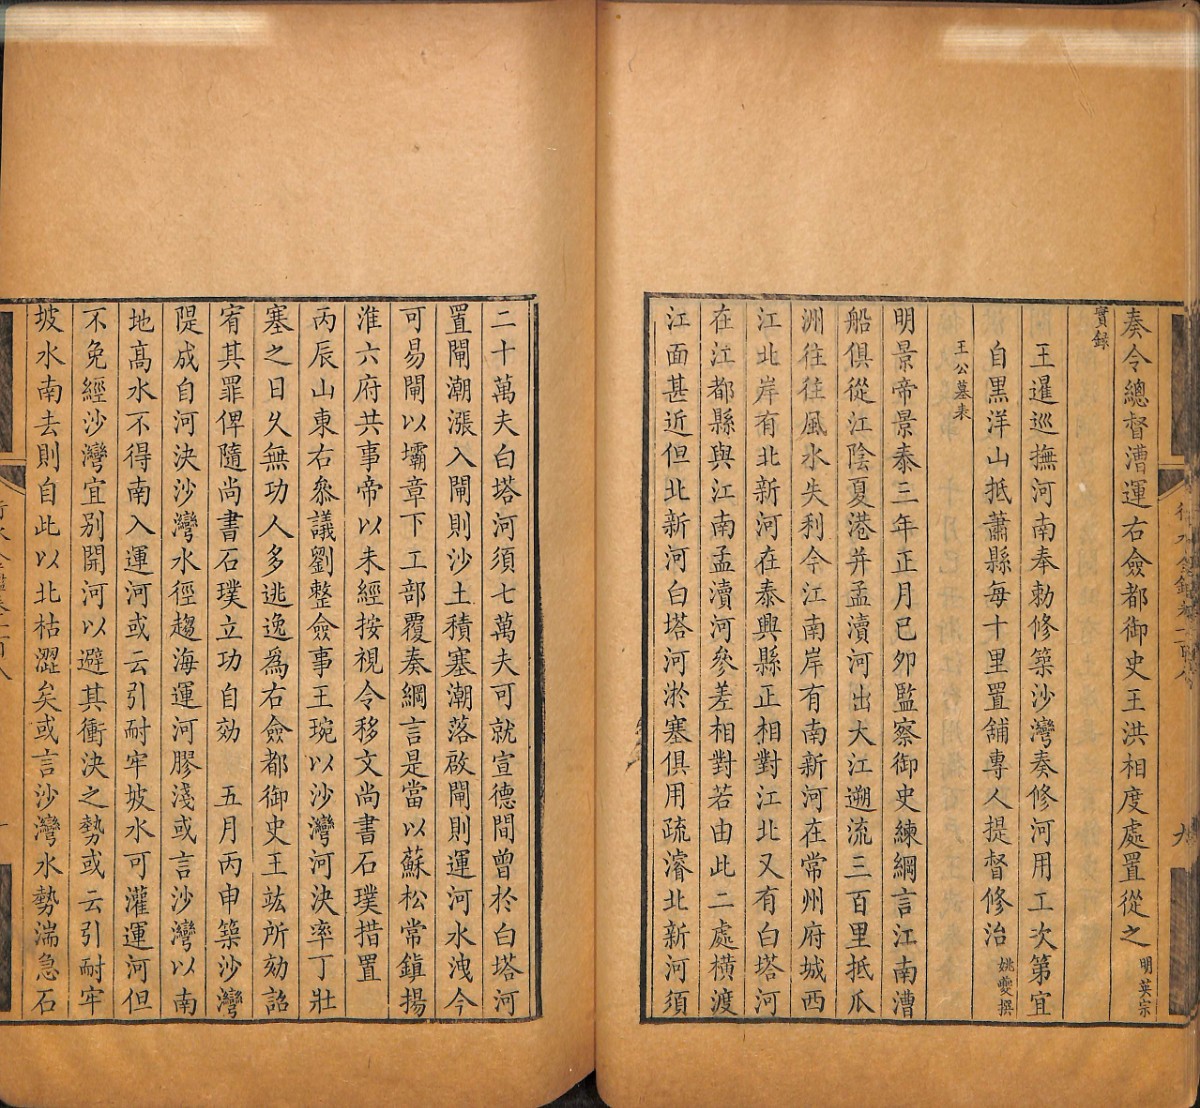 奏令總督漕運右僉都御史王洪相度處置從之明英宗
實録
王暹巡撫河南奉勅修築沙灣奏修河用工次第宜
自黑洋山抵蕭縣每十里置舖專人提督修治姚夔撰
王公墓表
明景帝景泰三年正月已夘監察御史練綱言江南漕
船俱從江陰夏港并孟瀆河出大江遡流三百里抵瓜
洲往往風水失利今江南岸有南新河在常州府城西
江北岸有北新河在泰興縣正相對江北又有白塔河
在江都縣與江南孟瀆河參差相對若由此二處橫渡
江面甚近但北新河白塔河淤塞俱用疏濬北新河須
二十萬夫白塔河須七萬夫可就宣德間曾於白塔河
置閘潮漲入閘則沙土積塞潮落啟閘則運河水洩今
可易閘以壩章下工部覆奏綱言是當以蘇松常鎮揚
淮六府共事帝以未經按視令移文尚書石璞措置
丙辰山東右叅議劉整僉事王琬以沙灣河決率丁壯
塞之日乆無功人多逃逸爲右僉都御史王竑所劾詔
宥其罪俾隨尚書石璞立功自効　五月丙申築沙灣
隄成自河決沙灣水徑趨海運河膠淺或言沙灣以南
地髙水不得南入運河或云引耐牢坡水可灌運河但
不免經沙灣宜别開河以避其衝決之勢或云引耐牢
坡水南去則自此以北枯澀矣或言沙灣水勢湍急石